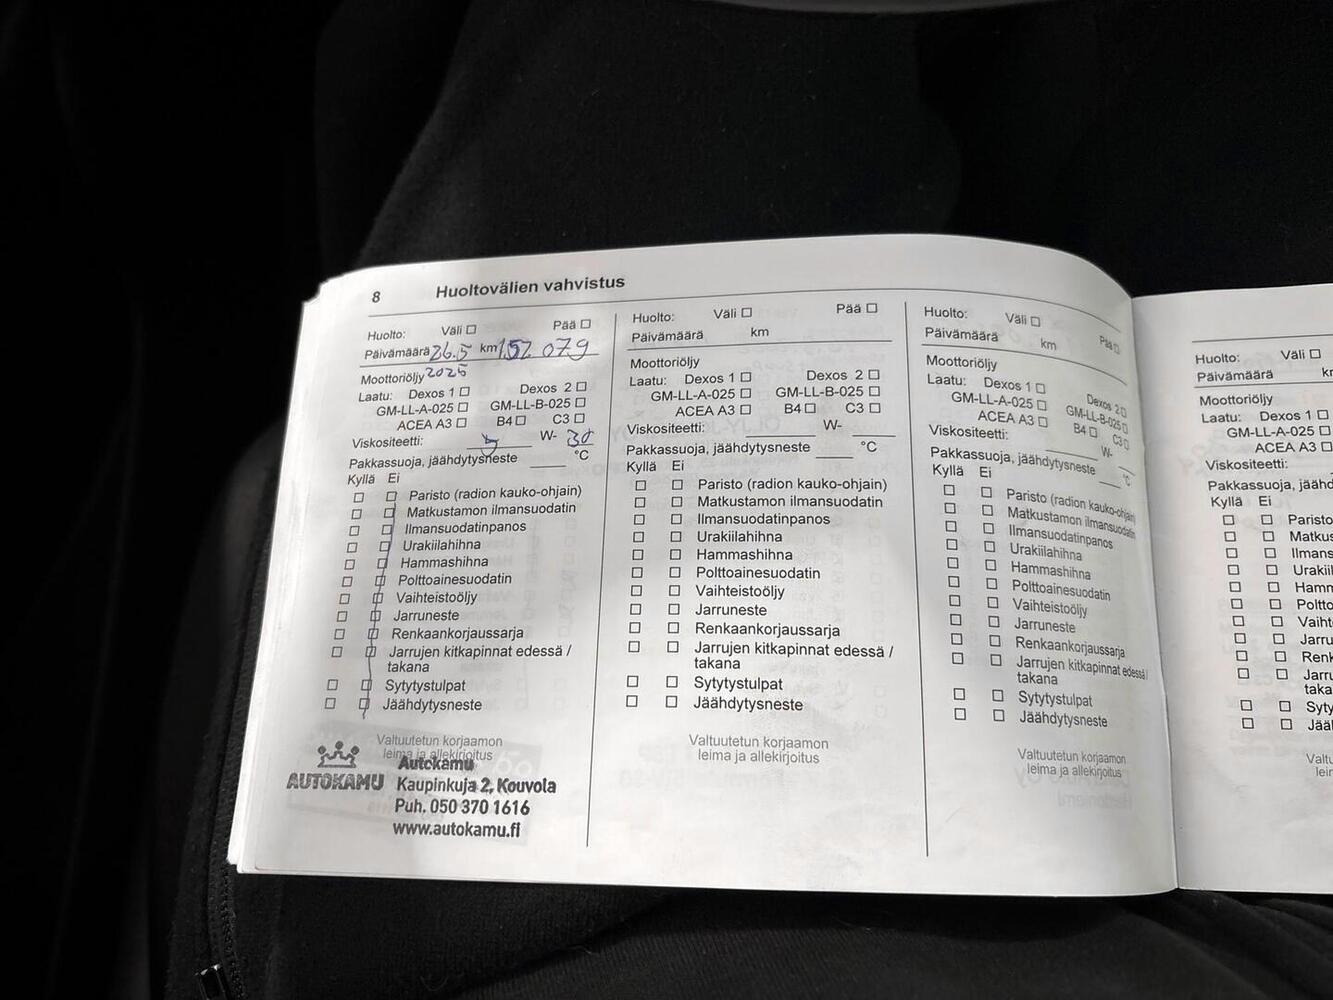 8 Huoltovälien vahvistus
Huolto: Väli ☐ Pää ☐
Päivämäärä 26.5 km 152 079
2025
Moottoriöljy
Laatu: Dexos 1 ☐ Dexos 2 ☐
GM-LL-A-025 ☐ GM-LL-B-025 ☐
ACEA A3 ☐ B4 ☐ C3 ☐
Viskositeetti: W- 30
Pakkassuoja, jäähdytysneste °C
Kyllä Ei
☐ ☐ Paristo (radion kauko-ohjain)
☐ ☐ Matkustamon ilmansuodatin
☐ ☐ Ilmansuodatinpanos
☐ ☐ Urakiilahihna
☐ ☐ Hammashihna
☐ ☐ Polttoainesuodatin
☐ ☐ Vaihteistoöljy
☐ ☐ Jarruneste
☐ ☐ Renkaankorjaussarja
☐ ☐ Jarrujen kitkapinnat edessä /
takana
☐ ☐ Sytytystulpat
☐ ☐ Jäähdytysneste
Valtuutetun korjaamon
leima ja allekirjoitus
AUTOKAMU
Autokamu
Kaupinkuja 2, Kouvola
Puh. 050 370 1616
www.autokamu.fi
Huolto: Väli ☐ Pää ☐
Päivämäärä km
Moottoriöljy
Laatu: Dexos 1 ☐ Dexos 2 ☐
GM-LL-A-025 ☐ GM-LL-B-025 ☐
ACEA A3 ☐ B4 ☐ C3 ☐
Viskositeetti: W-
Pakkassuoja, jäähdytysneste °C
Kyllä Ei
☐ ☐ Paristo (radion kauko-ohjain)
☐ ☐ Matkustamon ilmansuodatin
☐ ☐ Ilmansuodatinpanos
☐ ☐ Urakiilahihna
☐ ☐ Hammashihna
☐ ☐ Polttoainesuodatin
☐ ☐ Vaihteistoöljy
☐ ☐ Jarruneste
☐ ☐ Renkaankorjaussarja
☐ ☐ Jarrujen kitkapinnat edessä /
takana
☐ ☐ Sytytystulpat
☐ ☐ Jäähdytysneste
Valtuutetun korjaamon
leima ja allekirjoitus
Huolto: Väli ☐ Pää ☐
Päivämäärä km
Moottoriöljy
Laatu: Dexos 1 ☐ Dexos 2 ☐
GM-LL-A-025 ☐ GM-LL-B-025 ☐
ACEA A3 ☐ B4 ☐ C3 ☐
Viskositeetti: W-
Pakkassuoja, jäähdytysneste °C
Kyllä Ei
☐ ☐ Paristo (radion kauko-ohjain)
☐ ☐ Matkustamon ilmansuodatin
☐ ☐ Ilmansuodatinpanos
☐ ☐ Urakiilahihna
☐ ☐ Hammashihna
☐ ☐ Polttoainesuodatin
☐ ☐ Vaihteistoöljy
☐ ☐ Jarruneste
☐ ☐ Renkaankorjaussarja
☐ ☐ Jarrujen kitkapinnat edessä /
takana
☐ ☐ Sytytystulpat
☐ ☐ Jäähdytysneste
Valtuutetun korjaamon
leima ja allekirjoitus
Huolto: Väli ☐
Päivämäärä
Moottoriöljy
Laatu: Dexos 1 ☐
GM-LL-A-025 ☐
ACEA A3 ☐
Viskositeetti:
Pakkassuoja, jäähd
Kyllä Ei
☐ ☐ Paristo
☐ ☐ Matkus
☐ ☐ Ilmans
☐ ☐ Urakiil
☐ ☐ Hamm
☐ ☐ Poltto
☐ ☐ Vaiht
☐ ☐ Jarru
☐ ☐ Renk
☐ ☐ Jarru
taka
☐ ☐ Syty
☐ ☐ Jääl